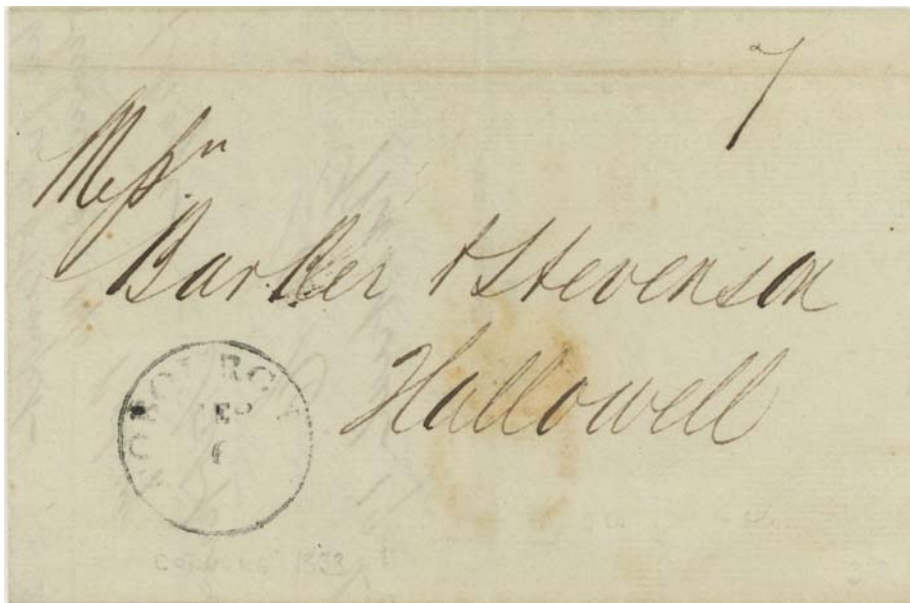 7
Messrs
Barker & Stevenson
Hallowell
COBOURG
SEP
6
COBOURG 1833